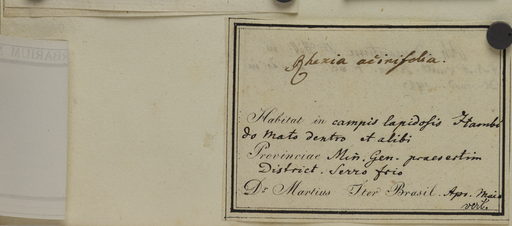 Rhexia acinifolia.
Habitat in campis lapidosis Itambé
do Mato dentro et alibi
Provinciae Min. Gen. praesertim
District. Serro frio
Dr Martius Iter Brasil. Apr. Maio